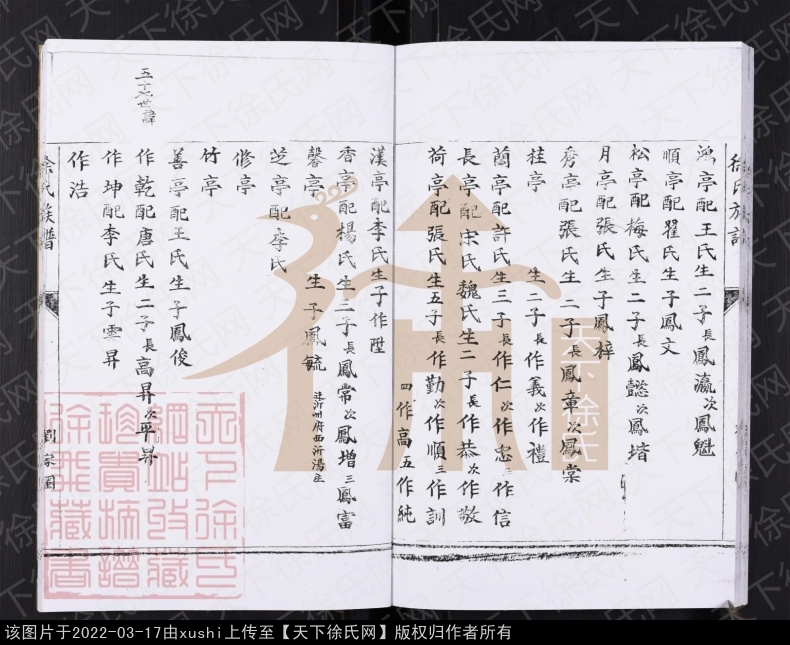 鴻亭配王氏生二子長鳳瀛次鳳魁
順亭配翟氏生子鳳文
松亭配梅氏生二子長鳳懿次鳳堦
月亭配張氏生子鳳梓
秀亭配張氏生二子長鳳章次鳳棠
桂亭 生二子長作義次作禮
蘭亭配許氏生三子長作仁次作忠三作信
長亭配宋氏魏氏生二子長作恭次作敬
荷亭配張氏生五子長作勤次作順三作訓
四作高五作純
漢亭配李氏生子作陞
香亭配楊氏生二子長鳳常次鳳增三鳳富
馨亭 生子鳳毓
芝亭配李氏
修亭
竹亭
善亭配王氏生子鳳俊
五十七世諱
作乾配唐氏生二子長高昇次平昇
作坤配李氏生子雲昇
作浩
徐氏族譜
天下徐氏
天下徐氏网
该图片于2022-03-17由xushi上传至【天下徐氏网】版权归作者所有